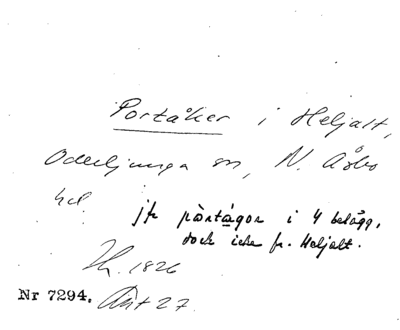 Portåker i Heljalt,
Oderljunga sn, N. Åsbo
hd
jfr pårtågor i 4 belägg,
dock icke fr. Heljalt.
1826
Nr 7294. 27